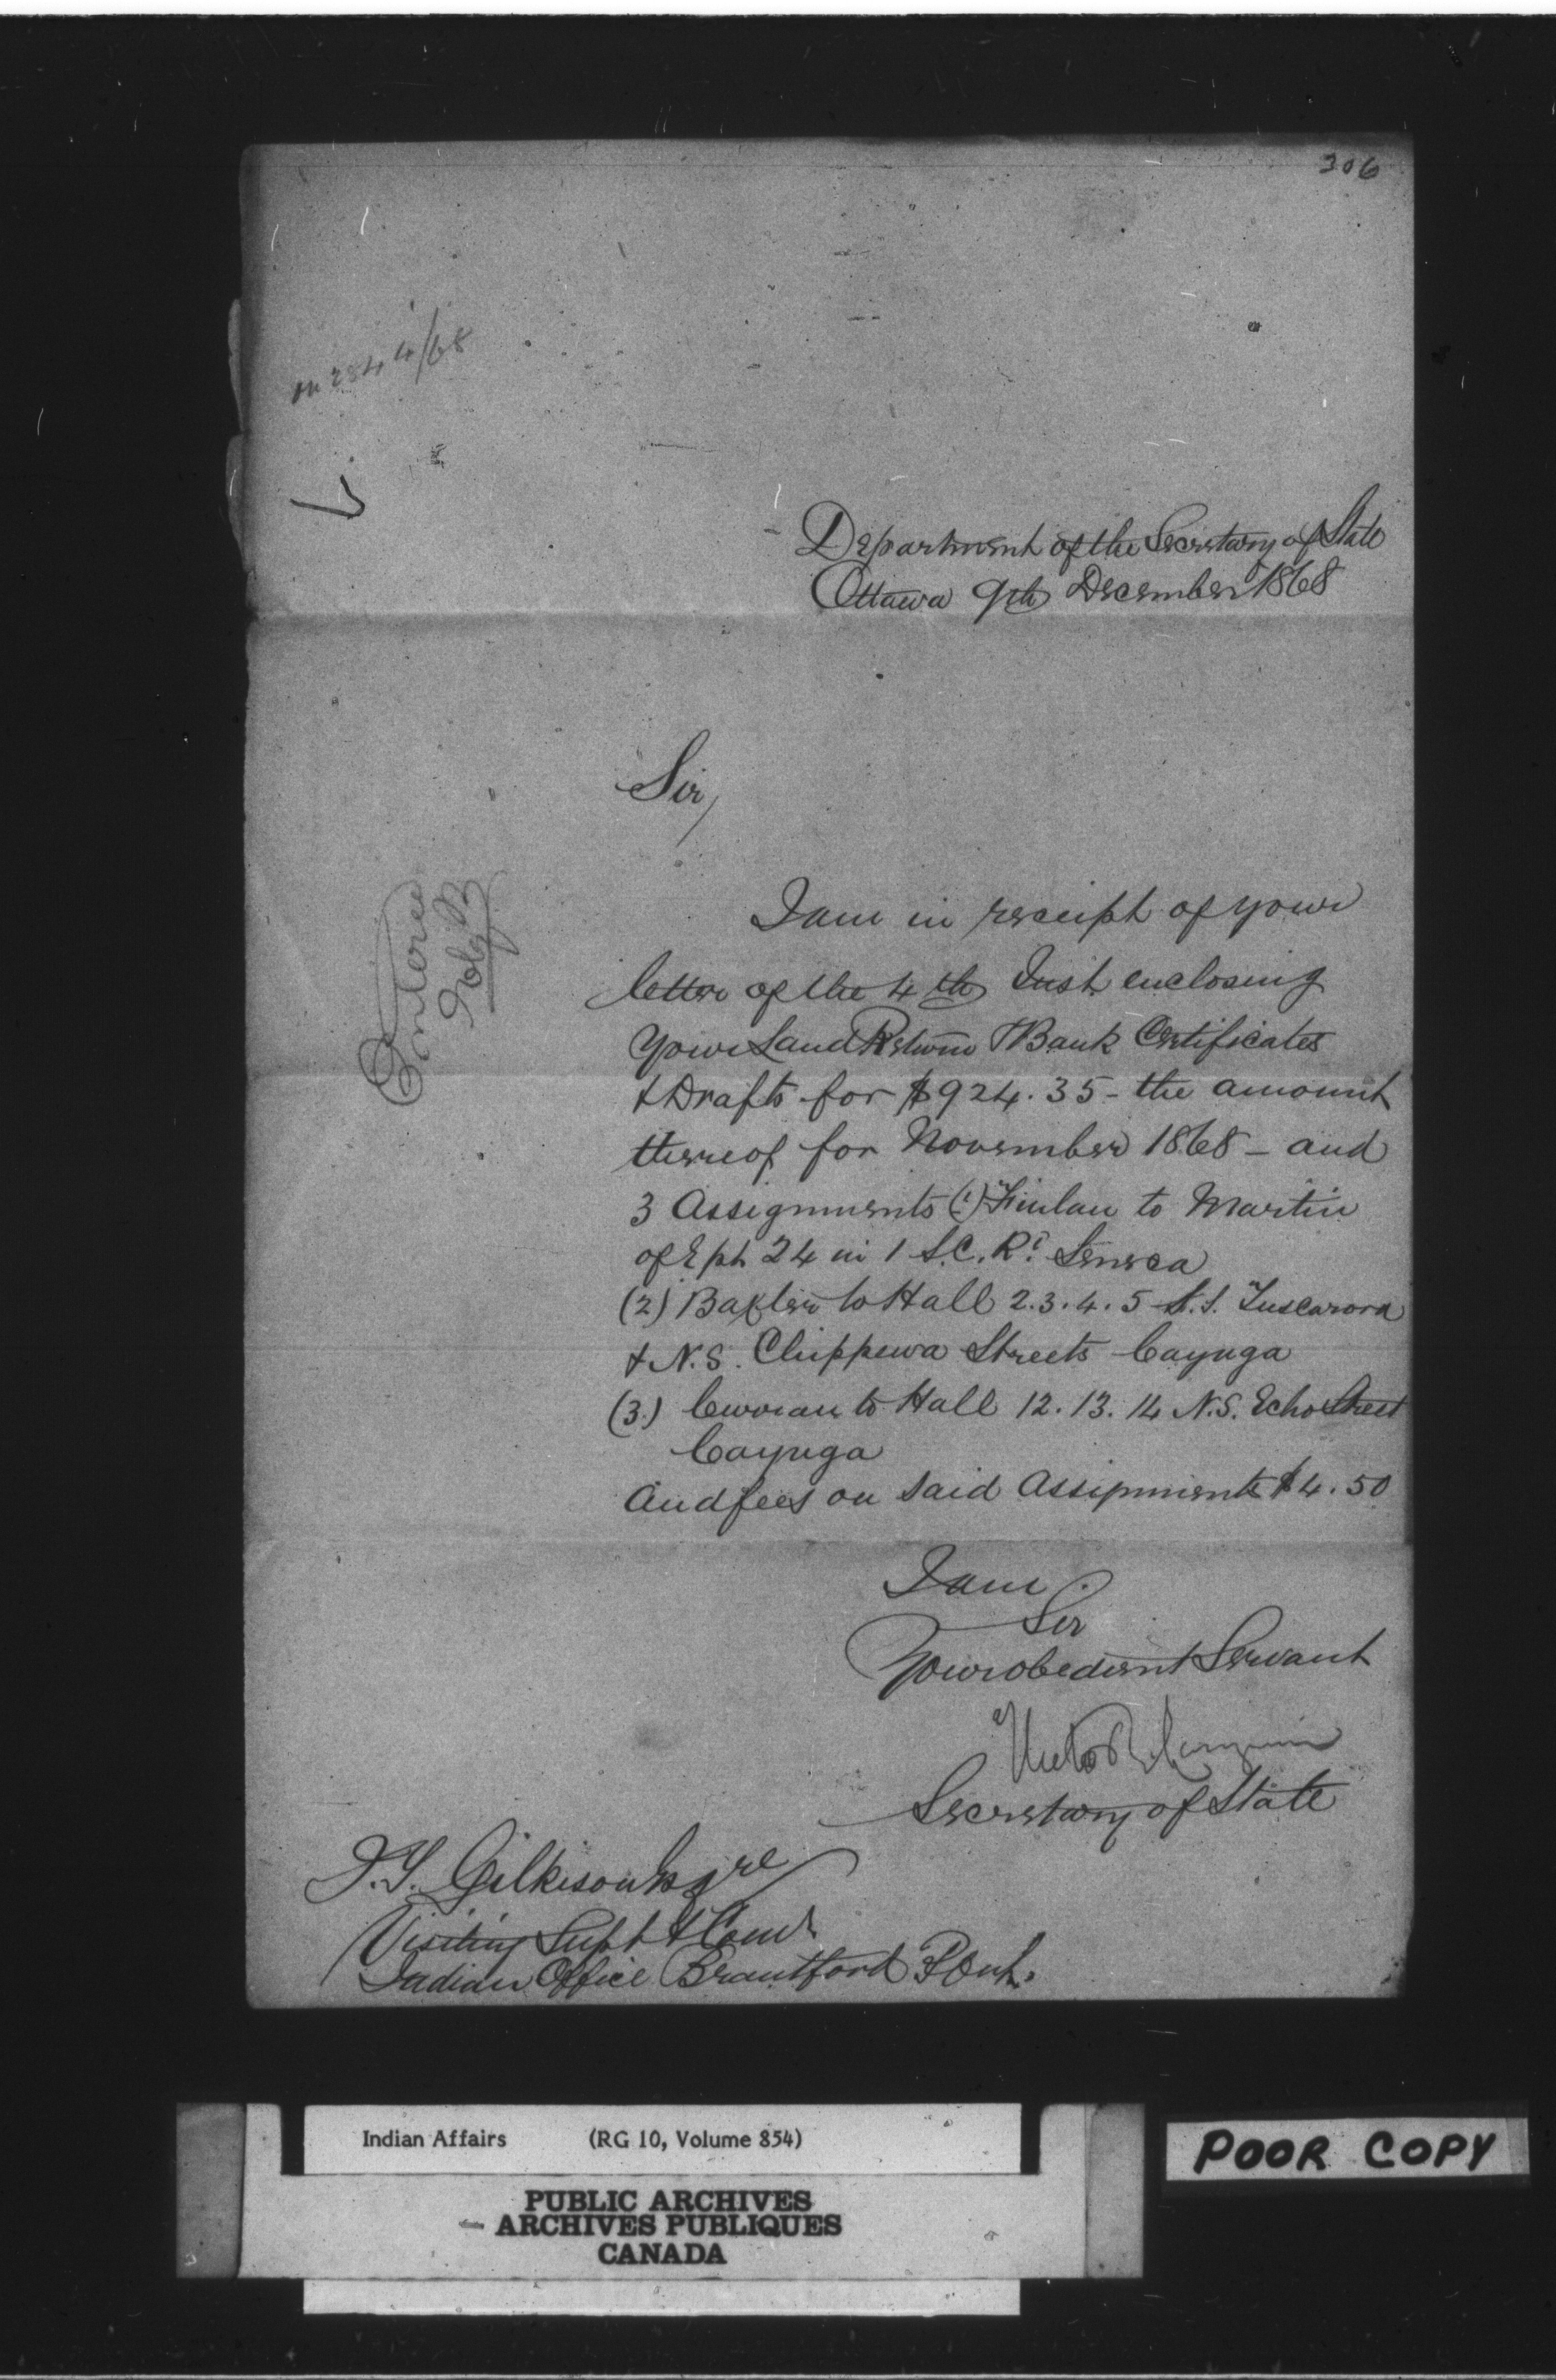 306
Department of the Secretary of State
Ottawa 9th December 1868
Sir,
I am in receipt of your
letter of the 4th Inst. enclosing
your Land Return Bank Certificates
& Drafts for $924.35 - the amount
thereof for November 1868 - and
3 Assignments (1) Finlan to Martin
of E pt 24 in 1 S.C. Rd. Seneca
(2) Baxter to Hall 2.3.4.5 S.S. Tuscarora
& N.S. Chippewa Streets Cayuga
(3.) to Hall 12.13.14 N.S. Echo Street
Cayuga
And fees on said Assignments $4.50
I am
Sir
Your obedient Servant
Secretary of State
J.T. Gilkison Esqre
Visiting Supt & Comr
Indian Office Brantford P Ont.
Entered
Indian Affairs (RG 10, Volume 854)
PUBLIC ARCHIVES
ARCHIVES PUBLIQUES
CANADA
POOR COPY